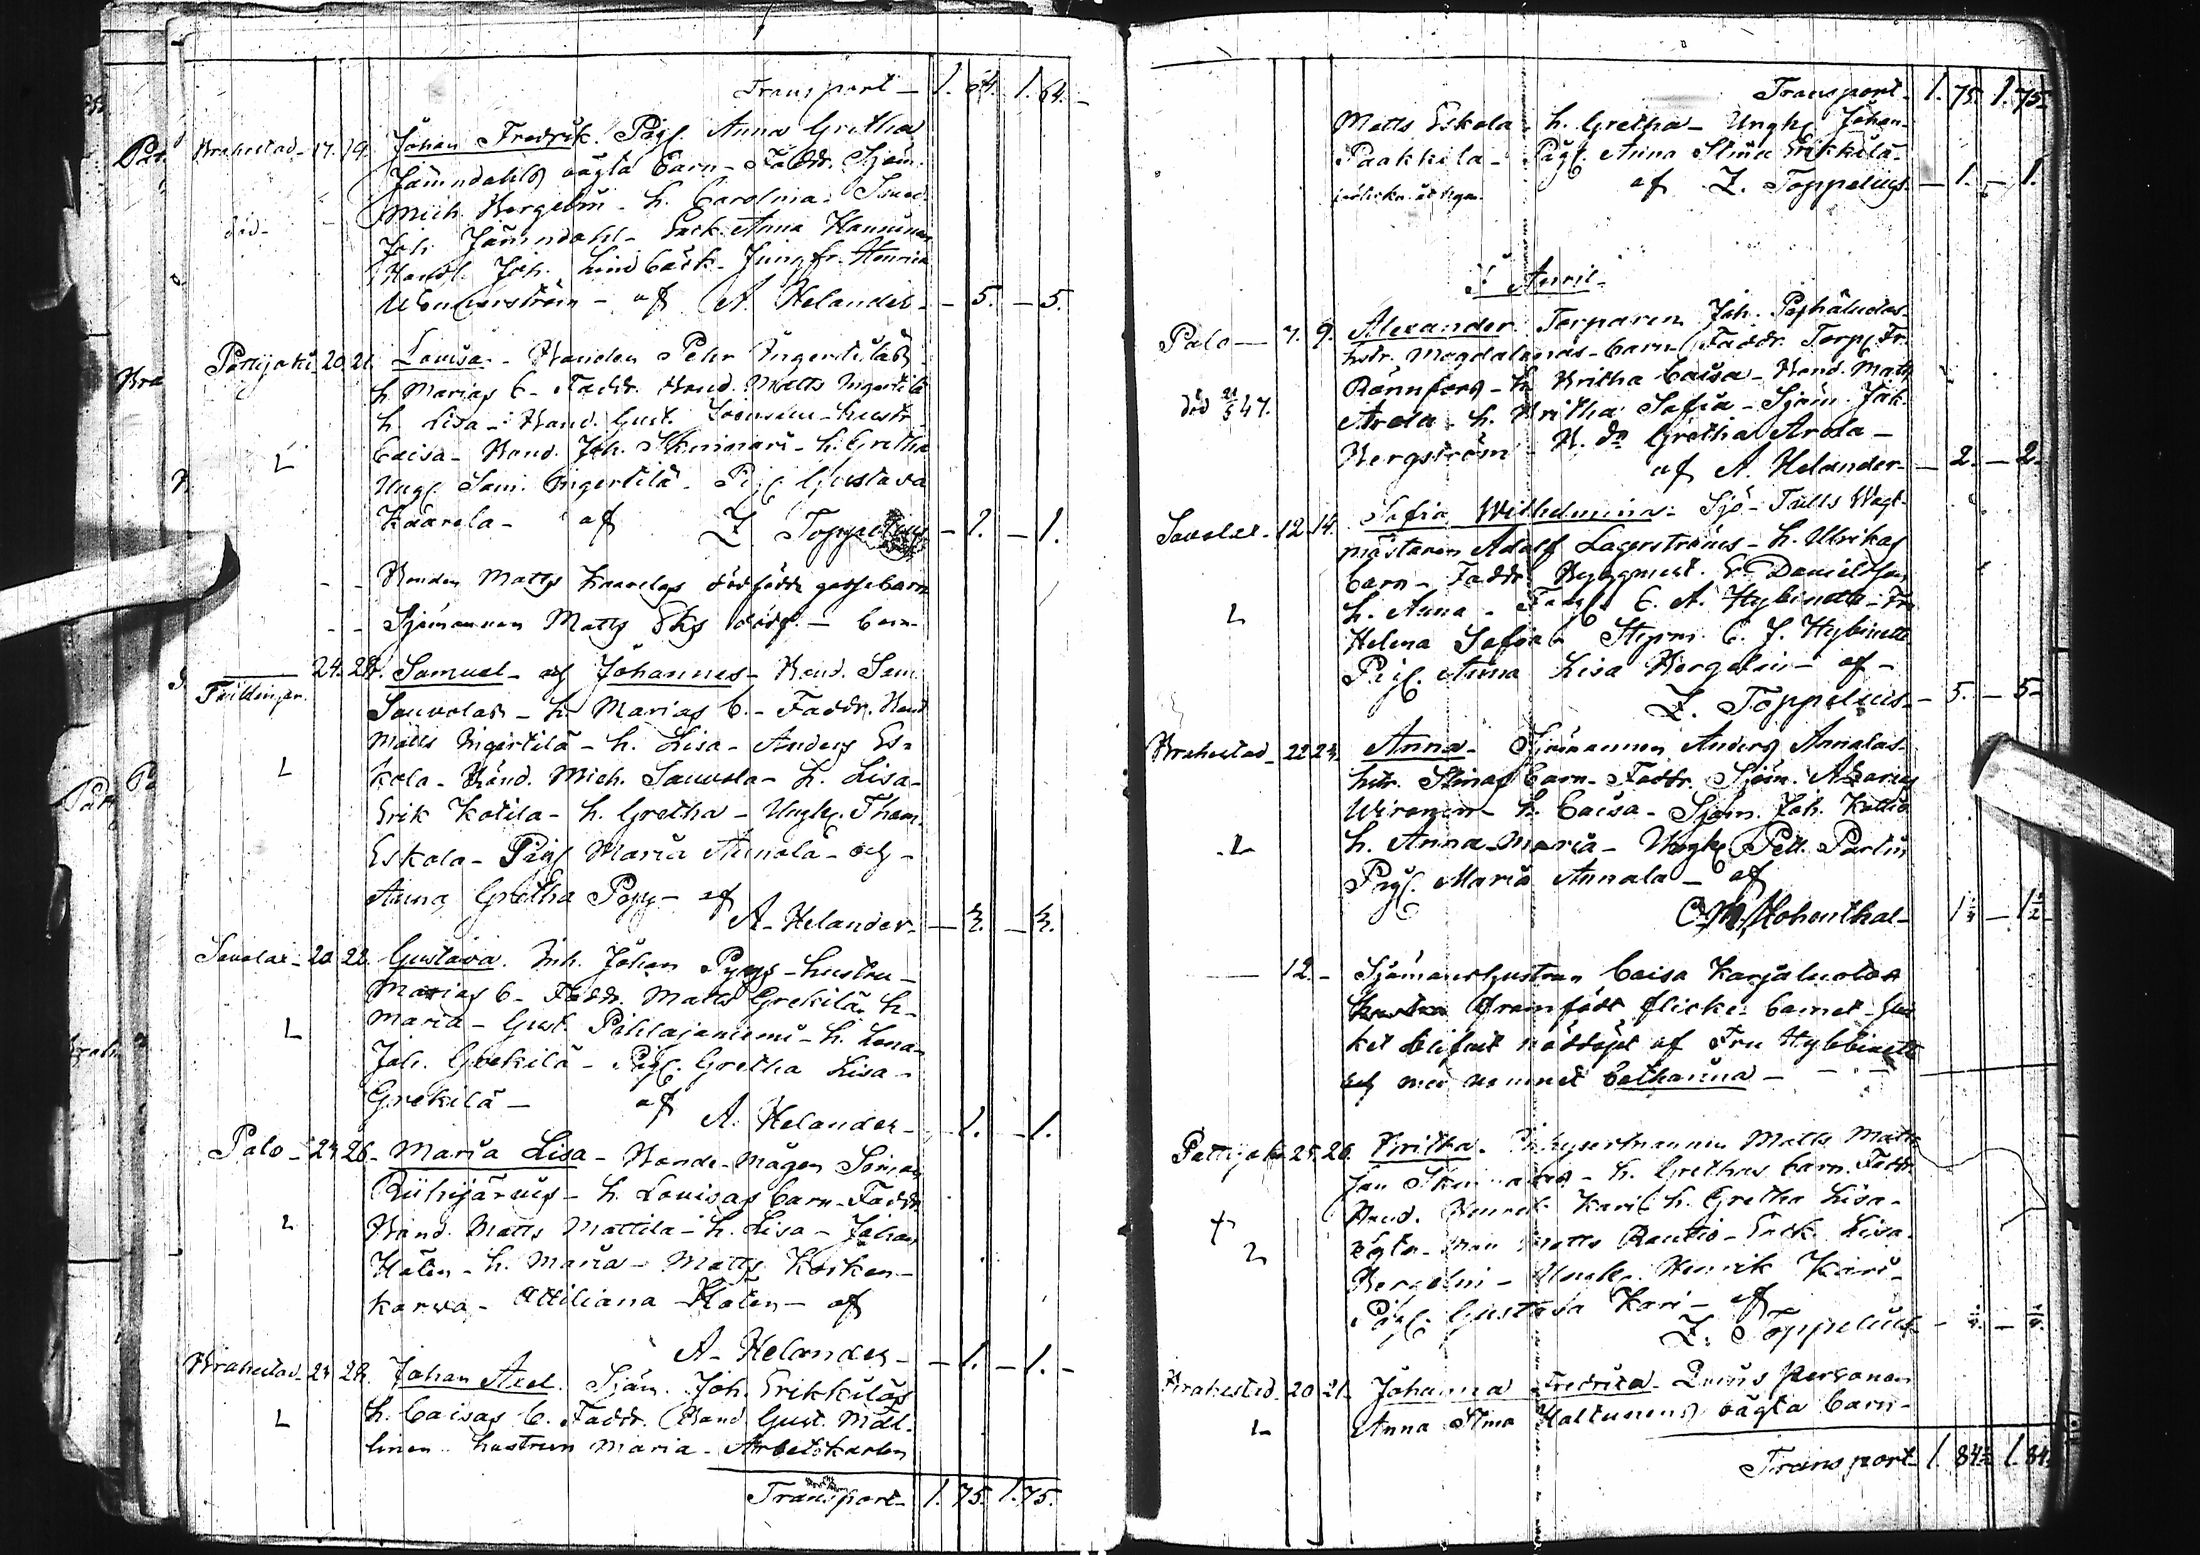 Transport - 1. 64. 1. 64. -
Brahestad - 17. 19. Johan Fredrik. Pig. Anna Gretha
Jämndahls oägta barn - Faddr. Sjöm.
Mich. Bergelin - h. Carolina. Smed.
död - Joh. Jämndahl - Enck. Anna Hanninen
Handl. Joh. Lindbäck - Jungfr. Henrica
af A. Helander - 5. - 5.
Pattijoki 20. 21. Lovisa. - Bonden Petr Ingertiläs
h. Marias b. - Faddr. Bond. Matts Ingertilä
h. Lisa - Bond. Gust. - hustr.
L Caisa - Bond. Joh. - h. Gretha
Ungk. Sam. Ingertilä - Pig. Gustava
Kaarela - af Z. Toppelius - 1. - 1.
- - Bonden Matts Kaarelas dödfödde gossebarn
- - Sjömannen Matts Eks dödf. - barn -
24. 28. Samuel - och Johannes - Bond. Sam.
Tvillingar. Sauvolas - h. Marias b. - Faddr. Bond
Matts Ingertilä - h. Lisa - Anders Es-
L kola - Bond. Mich. Sauvola - h. Lisa -
Erik Kotila - h. Gretha - Ungk. Thom.
Eskola - Pig. Maria Annala - och -
Anna Gretha Pyy - af
A. Helander -
Savolax - 20. 22. Gustava. Inh. Johan Pyys - hustru -
Marias b. - Faddr. Matts Grekilä h.
L Maria - Gust. Pihlajaniemi - h. Lena -
Joh. Grekilä - Pig. Gretha Lisa -
Grekilä - af
A. Helander - 1. - 1.
Palo - 24. 26. - Maria Lisa - Bonde-mågen
Riihijärvis - h. Lovisas barn - Faddr.
L Bond. Matts Mattila - h. Lisa - Johan
Haten - h. Maria - Matts Korken-
karva - Ottiliana Haten - af
A. Helander - 1. - 1. -
Brahestad - 24. 28. Johan Axel. Sjöm. Joh. Erikkiläs
L h. Caisas b. Faddr. Bond Gust. Mäl-
linen - hustrun Maria - Arbetskarlen
Transport - 1. 75. 1. 75.
Transport - 1. 75. 1. 75.
Matts Eskola - h. Gretha - Ungk. Johan
Paakkila - Pig. Anna Stina Erikkilä -
af Z. Toppelius - 1. - 1.
I April -
Palo - 7. 9. Alexander. Torparen Joh. Pajhäludas
hstr. Magdalenas - barn - Faddr. Torp. Fr.
Rönnfors - h. Britha Caisa - Bond. Matts
död 21/5 47. Arola - h. Britha Sofia - Sjöm. Jak.
Bergström - B. dr. Gretha Arola -
af A. Helander - 2. - 2.
Savolax - 12. 14. Sofia Wilhelmina - Sjö-Tulls Vagt-
mästaren Adolf Lagerströms - h. Ulrikas
barn - Faddr. Byggmest. E. Danielsson
L h. Anna - C. A. Hybinette - Fru
Helena Sofia - Styrm. C. J. Hybinette
Pig. Anna Lisa Bergelin - af -
Z. Toppelius - 5. - 5.
Brahestad - 22. 24. Anna - Sjömannen Anders Annalas -
hstr. Stinas barn - Faddr. Sjöm. Azarias
Wironen - h. Caisa - Sjöm. Joh. Kottio
- L h. Anna Maria - Ungk. Pett. Partin
Pig. Maria Annala - af
C. M. Hohenthal - 1½ - 1½
- 12. - Sjömanshustrun Caisa Karjaluotos
framfödt flicke barnet -
ket blifvit nöddöpt af Fru Hybbinette
och med namnet Catharina - - -
Pattijoki 25. 26. Britha - Matts Matts
son - h. Grethas barn. Faddr.
Bond. Henrik Kari h. Gretha Lisa -
L Matts Rautio - Enck. Lisa
Bergelin - Ungk. Henrik Kari -
Pig. Gustava Kari - af
Z. Toppelius -
Brahestad 20. 21. Johanna Fredrika - Qvins personen
L Anna Stina Haltunens oägta barn -
Transport 1. 84½ 1. 84½